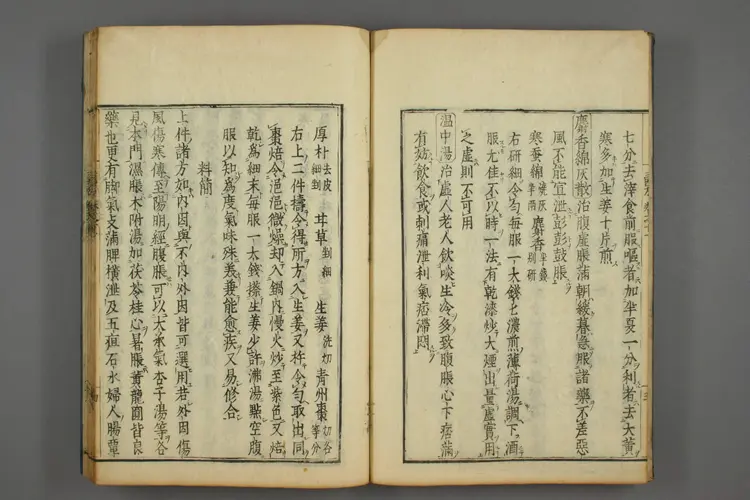 七分去滓食前服嘔者加半夏一分利者去大黄
寒多加生姜十斤煎
麝香綿灰散治腹虚脹滿朝緩暮急服諸藥不差惡
風不能宣泄彭彭鼓脹
寒蚕綿 麝香 別研
右研細令勻每服一大錢濃煎薄荷湯調下酒
服尤佳不以時一法有乾漆炒大煙出量虚實用
之虚則不可用
温中湯治虚人老人飲啖生冷多致腹脹心下痞滿
有妨飲食或刺痛泄利氣痞滯悶
厚朴去皮細剉 甘草剉細 生姜洗切 青州棗切各等分
右上二件擣令得所方入生姜又杵令勻取出同
棗焙令浥浥微燥却入鍋内慢火炒至紫色又焙
乾爲細末每服一大錢搽生姜少許沸湯點空腹
服以知爲度氣味殊羙兼能愈疾又易修合
料簡
上件諸方如内因與不内外因皆可選用若外因傷
風傷寒傳至陽明經腹脹可以大承氣杏子湯等各
見本門濕脹朮附湯加茯苓桂心暑脹黄龍圓皆良
藥也更有脚氣支滿脾横泄及五疸石水婦人腸覃